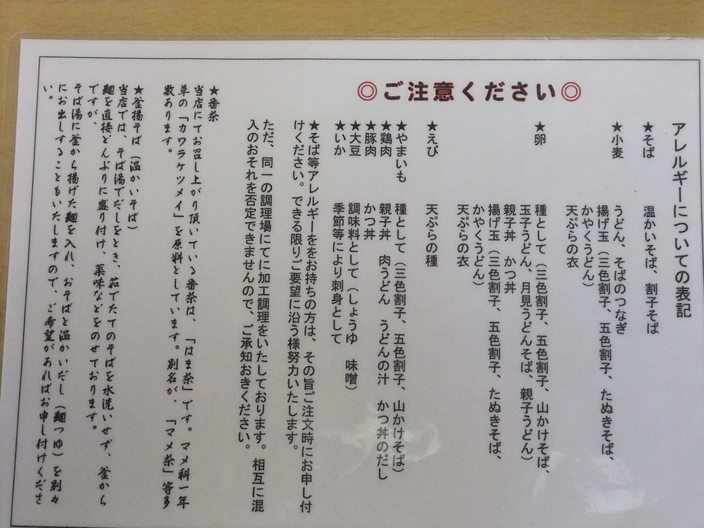 ◎ご注意ください◎
アレルギーについての表記
★そば　温かいそば、割子そば
★小麦　うどん、そばのつなぎ
揚げ玉（三色割子、五色割子、たぬきそば、
かやくうどん）
天ぷらの衣
★卵　種として（三色割子、五色割子、山かけそば、
玉子うどん、月見うどんそば、親子うどん）
親子丼　かつ丼
揚げ玉（三色割子、五色割子、たぬきそば、
かやくうどん）
天ぷらの衣
★えび　天ぷらの種
★やまいも　種として（三色割子、五色割子、山かけそば）
★鶏肉　親子丼　肉うどん　うどんの汁　かつ丼のだし
★豚肉　かつ丼
★大豆　調味料として（しょうゆ　味噌）
★いか　季節等により刺身として
★そば等アレルギーををお持ちの方は、その旨ご注文時にお申し付
けください。できる限りご要望に沿う様努力いたします。
ただ、同一の調理場にてに加工調理をいたしております。相互に混
入のおそれを否定できませんので、ご承知おきください。
★番茶
当店にてお召し上がり頂いている番茶は、「はま茶」です。マメ科一年
草の「カワラケツメイ」を原料としています。別名が、「マメ茶」等多
数あります。
★釜揚そば（温かいそば）
当店では、そば湯でだしをとき、茹でたてのそばを水洗いせず、釜から
麺を直接どんぶりに盛り付け、薬味などをのせております。
ですが、
そば湯に釜から揚げた麺を入れ、おそばと温かいだし（麺つゆ）を別々
にお出しすることもいたしますので、ご希望があればお申し付けくださ
い。